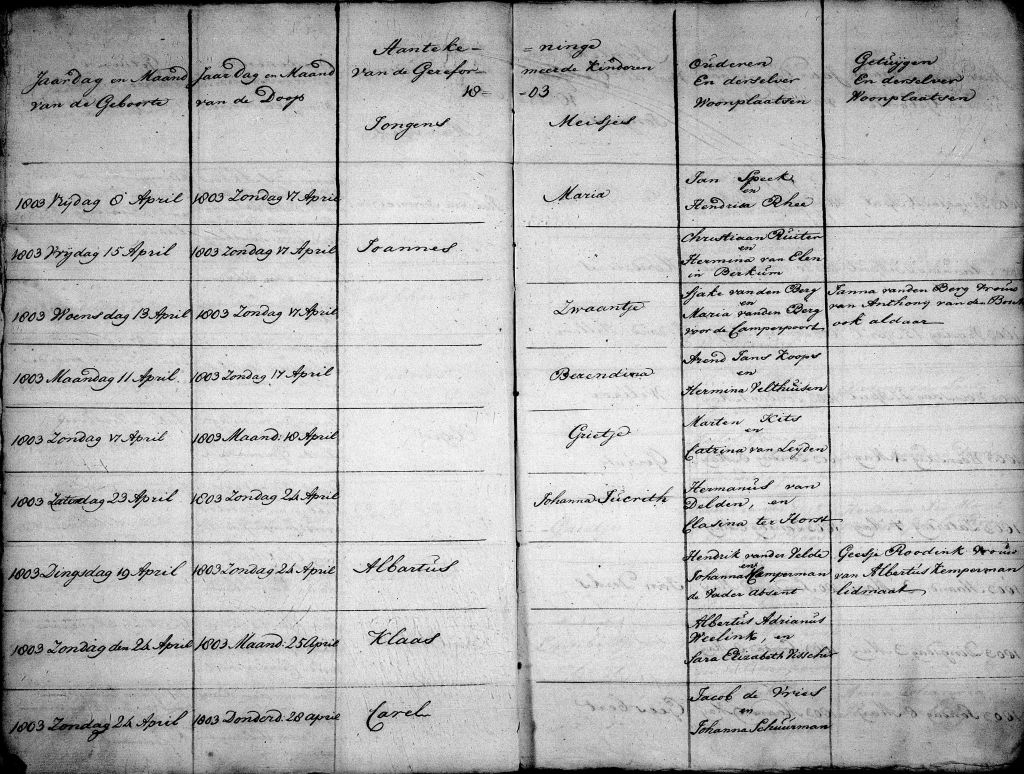 Jaardag en Maand
van de Geboorte
Jaardag en Maand
van de Doop
Aanteke=
van de Gerefor=
18=
Jongens
=ninge
meerde Kinderen
=03
Meisjes
Ouderen
En derselver
Woonplaatsen
Getuijgen
En derselver
Woonplaatsen
1803 Vrijdag 8 April 1803 Zondag 17 April Maria
Jan Speek
en
Hendrica Rhee
1803 Vrijdag 15 April 1803 Zondag 17 April Joannes
Christiaan Ruiter
en
Hermina van Elen
in Berkum
1803 Woensdag 13 April 1803 Zondag 17 April Zwaantje
Sjake vanden Berg
en
Maria vanden Berg
voor de Camperpoort
Janna vanden Berg vrouw
van Anthony van den
ook aldaar
1803 Maandag 11 April 1803 Zondag 17 April Berendina
Arend Jans Koops
en
Hermina Velthuisen
1803 Zondag 17 April 1803 Maand: 18 April Grietje
Marten Kits
en
Catrina van Leyden
1803 Zaterdag 23 April 1803 Zondag 24 April Johanna Juerith
Hermanus van
Delden, en
Clasina ter Horst
1803 Dingsdag 19 April 1803 Zondag 24 April Albartus
Hendrik vander Velde
en
Johanna Kemperman
de Vader absent
Geesje Roodink vrouw
van Albertus Kemperman
lidmaat
1803 Zondag den 24 April 1803 Maand: 25 April Klaas
Albertus Adrianus
Weelink, en
Sara Elizabeth Visscher
1803 Zondag 24 April 1803 Donderd: 28 april Carel
Jacob de Vries
en
Johanna Schuurman